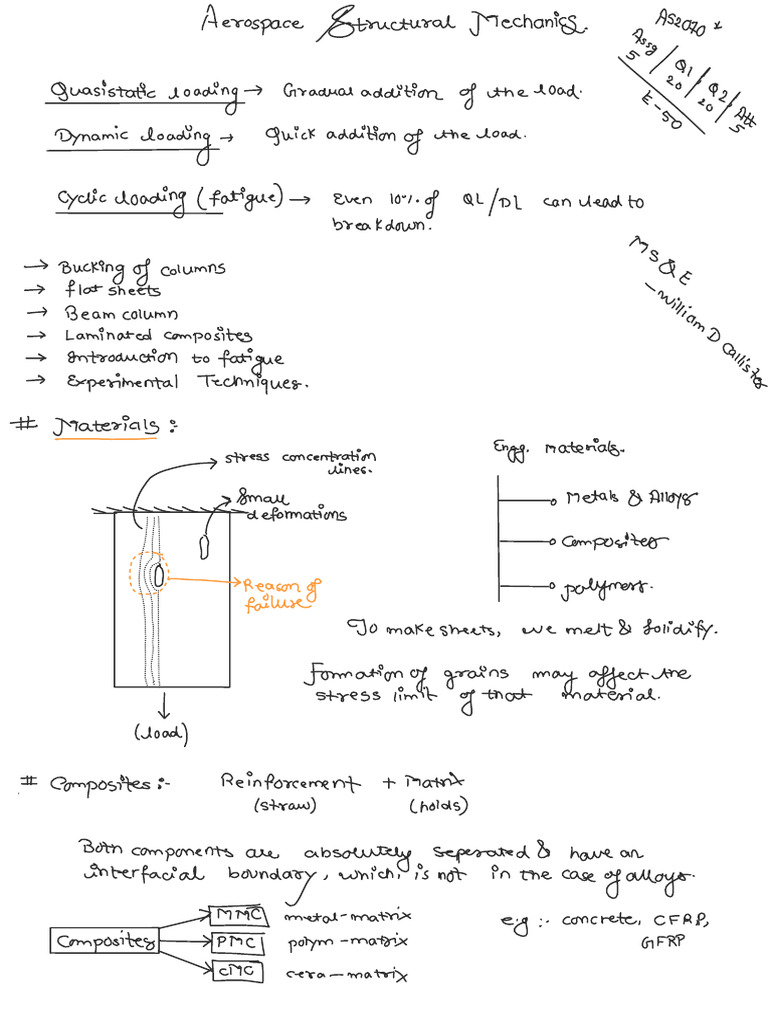 Aerospace Structural Mechanics.
AS2070 *
Assg | Q1 | Q2 | Att
5 | 20 | 20 | 5
E - 50
Quasistatic loading → Gradual addition of the load.
Dynamic loading → Quick addition of the load.
Cyclic loading (fatigue) → Even 10% of QL/DL can lead to
breakdown.
MS & E
- William D Callister
→ Bucking of columns
→ flat sheets
→ Beam column
→ Laminated composites
→ Introduction to fatigue
→ Experimental Techniques.
# Materials :-
stress concentration
lines.
Small
deformations
Reason of
failure
(load)
Engg. materials.
Metals & Alloys
Composites
polymers.
To make sheets, we melt & solidify.
Formation of grains may affect the
stress limit of that material.
# Composites :- Reinforcement + Matrix
(straw) (holds)
Both components are absolutely seperated & have an
interfacial boundary, which, is not in the case of alloys.
Composites
MMC metal-matrix
PMC polym-matrix
CMC cera-matrix
e.g :- concrete, CFRP,
GFRP